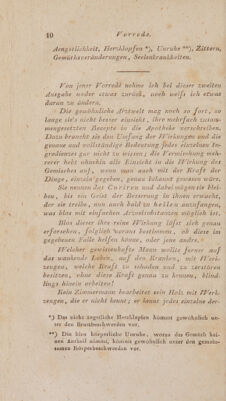 10 Vorrede.
Aengstlichkeit, Herzklopfen *), Unruhe **), Zittern,
Gemüthsveränderungen, Seelenkrankheiten.
Von jener Vorrede nehme ich bei dieser zweiten
Ausgabe weder etwas zurück, noch weiß ich etwas
daran zu ändern.
Die gewöhnliche Arztwelt mag noch so fort, so
lange sie nicht besser einsieht, ihre mehrfach zusam-
mengesetzten Recepte in die Apotheke verschreiben.
Dazu braucht sie den Umfang der Wirkungen und die
vollständige Bedeutung jedes einzelnen In-
gredienzes gar nicht zu wissen; die Vermischung
hebt ohnehin alle Einsicht in die Wirkung des
Gemisches auf, wenn man auch mit der Kraft der
Dinge, einzeln, genau bekannt gewesen wäre.
Sie nennen das Curiren und dabei mögen sie blei-
ben, bis ein Geist der Besserung in ihnen erwacht,
der sie treibt, nun auch bald zu heilen anzufangen,
was blos mit einfachen Arzneisubstanzen möglich ist.
Blos dieser ihre reine Wirkung läßt sich genau
erforschen, folglich voraus bestimmen, ob diese im
gegebenen Falle helfen könne, oder jene andre.
Welcher gewissenhafte Mann wollte ferner auf
das wankende Leben, auf den Kranken, mit Werk-
zeugen, welche Kraft zu schaden und zu zerstören
besitzen, ohne diese Kraft genau zu kennen, blind-
lings hinein arbeiten!
Kein Zimmermann bearbeitet sein Holz mit Werk-
zeugen, die er nicht kennt; er kennt jedes einzelne der-
*) Das nicht ängstliche Herzklopfen kömmt gewöhnlich un-
ter den Brustbeschwerden vor.
**) Die blos körperliche Unruhe, woran das Gemüth kei-
nen Antheil nimmt, kömmt gewöhnlich unter den gemein-
samen Körperbeschwerden vor.